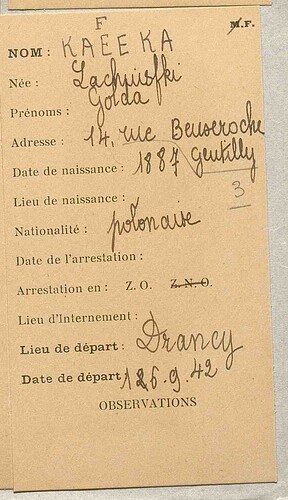 F
M.F.
NOM : KAEEKA
Née : Lachuisfki
Prénoms : Golda
Adresse : 14, rue Beuseroche
Gentilly
Date de naissance : 1887
3
Lieu de naissance :
Nationalité : polonaise
Date de l'arrestation :
Arrestation en : Z. O. Z. N. O.
Lieu d'Internement :
Lieu de départ : Drancy
Date de départ 16.9.42
OBSERVATIONS